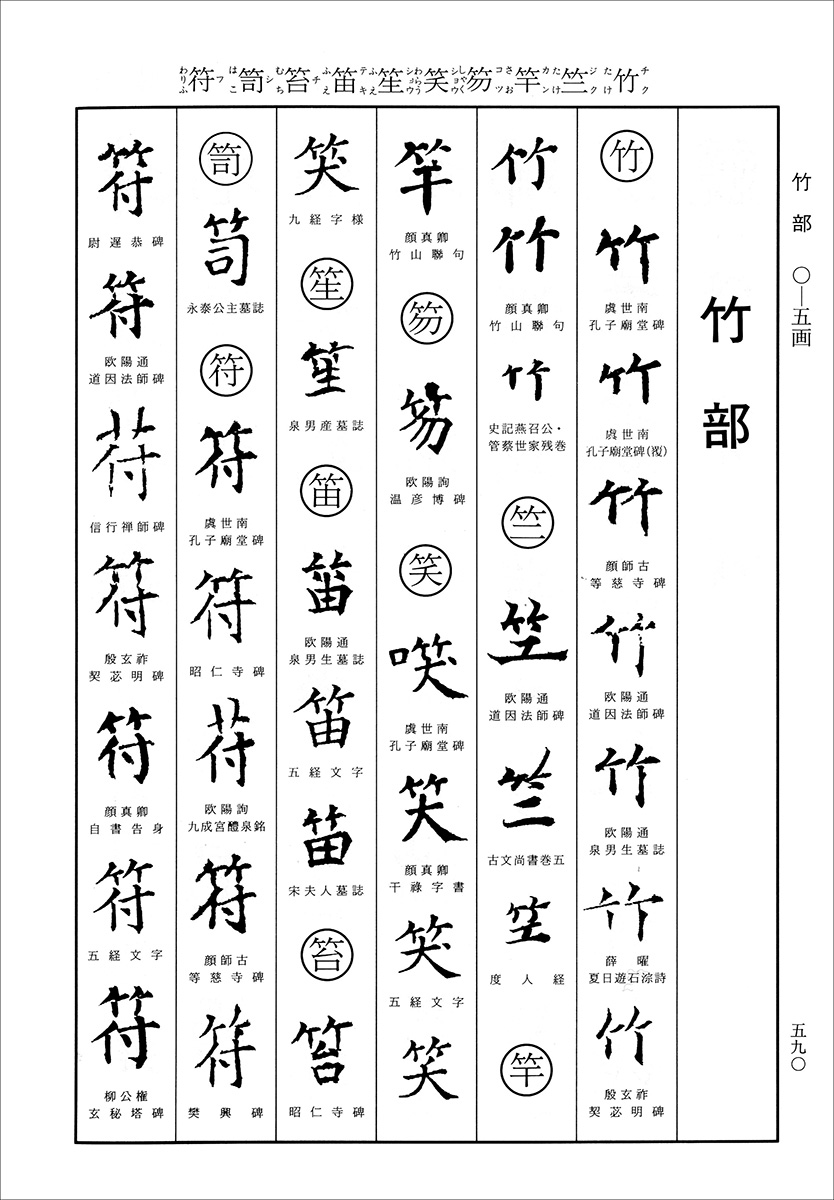 竹竺竿笏笑笙笛笞笥符
チク たけ
ジク
カン たけ
コツ さお
ショウ わらう
竹部 〇—五画
五九〇
竹部
竹
竹
虞世南
孔子廟堂碑
竹
虞世南
孔子廟堂碑(覆)
竹
顔師古
等慈寺碑
竹
欧陽通
道因法師碑
竹
欧陽通
泉男生墓誌
竹
薛曜
夏日遊石淙詩
竹
殷玄祚
契苾明碑
竹
竹
顔真卿
竹山聯句
竹
史記燕召公・
管蔡世家残巻
竺
竺
欧陽通
道因法師碑
竺
古文尚書巻五
竺
度人経
竿
竿
顔真卿
竹山聯句
笏
笏
欧陽詢
温彦博碑
笑
咲
虞世南
孔子廟堂碑
笑
顔真卿
干祿字書
笑
五経文字
笑
笑
九経字様
笙
笙
泉男産墓誌
笛
笛
欧陽通
泉男生墓誌
笛
五経文字
笛
宋夫人墓誌
笞
笞
昭仁寺碑
笥
笥
永泰公主墓誌
符
符
虞世南
孔子廟堂碑
符
昭仁寺碑
符
欧陽詢
九成宮醴泉銘
符
顔師古
等慈寺碑
符
樊興碑
符
尉遅恭碑
符
欧陽通
道因法師碑
符
信行禅師碑
符
殷玄祚
契苾明碑
符
顔真卿
自書告身
符
五経文字
符
柳公権
玄秘塔碑